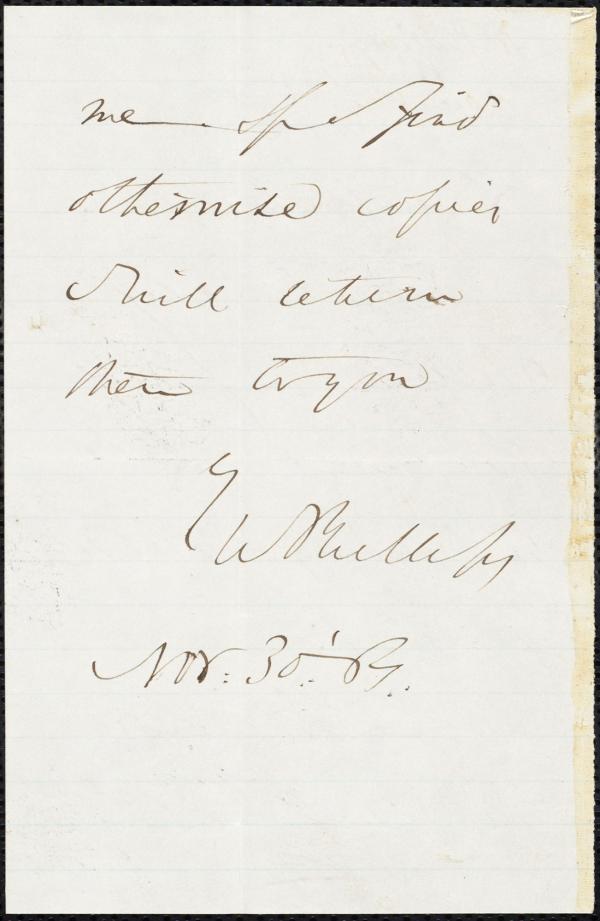 me — If I find
otherwise copies
I will return
them to you
W Phillips
Nov. 30'